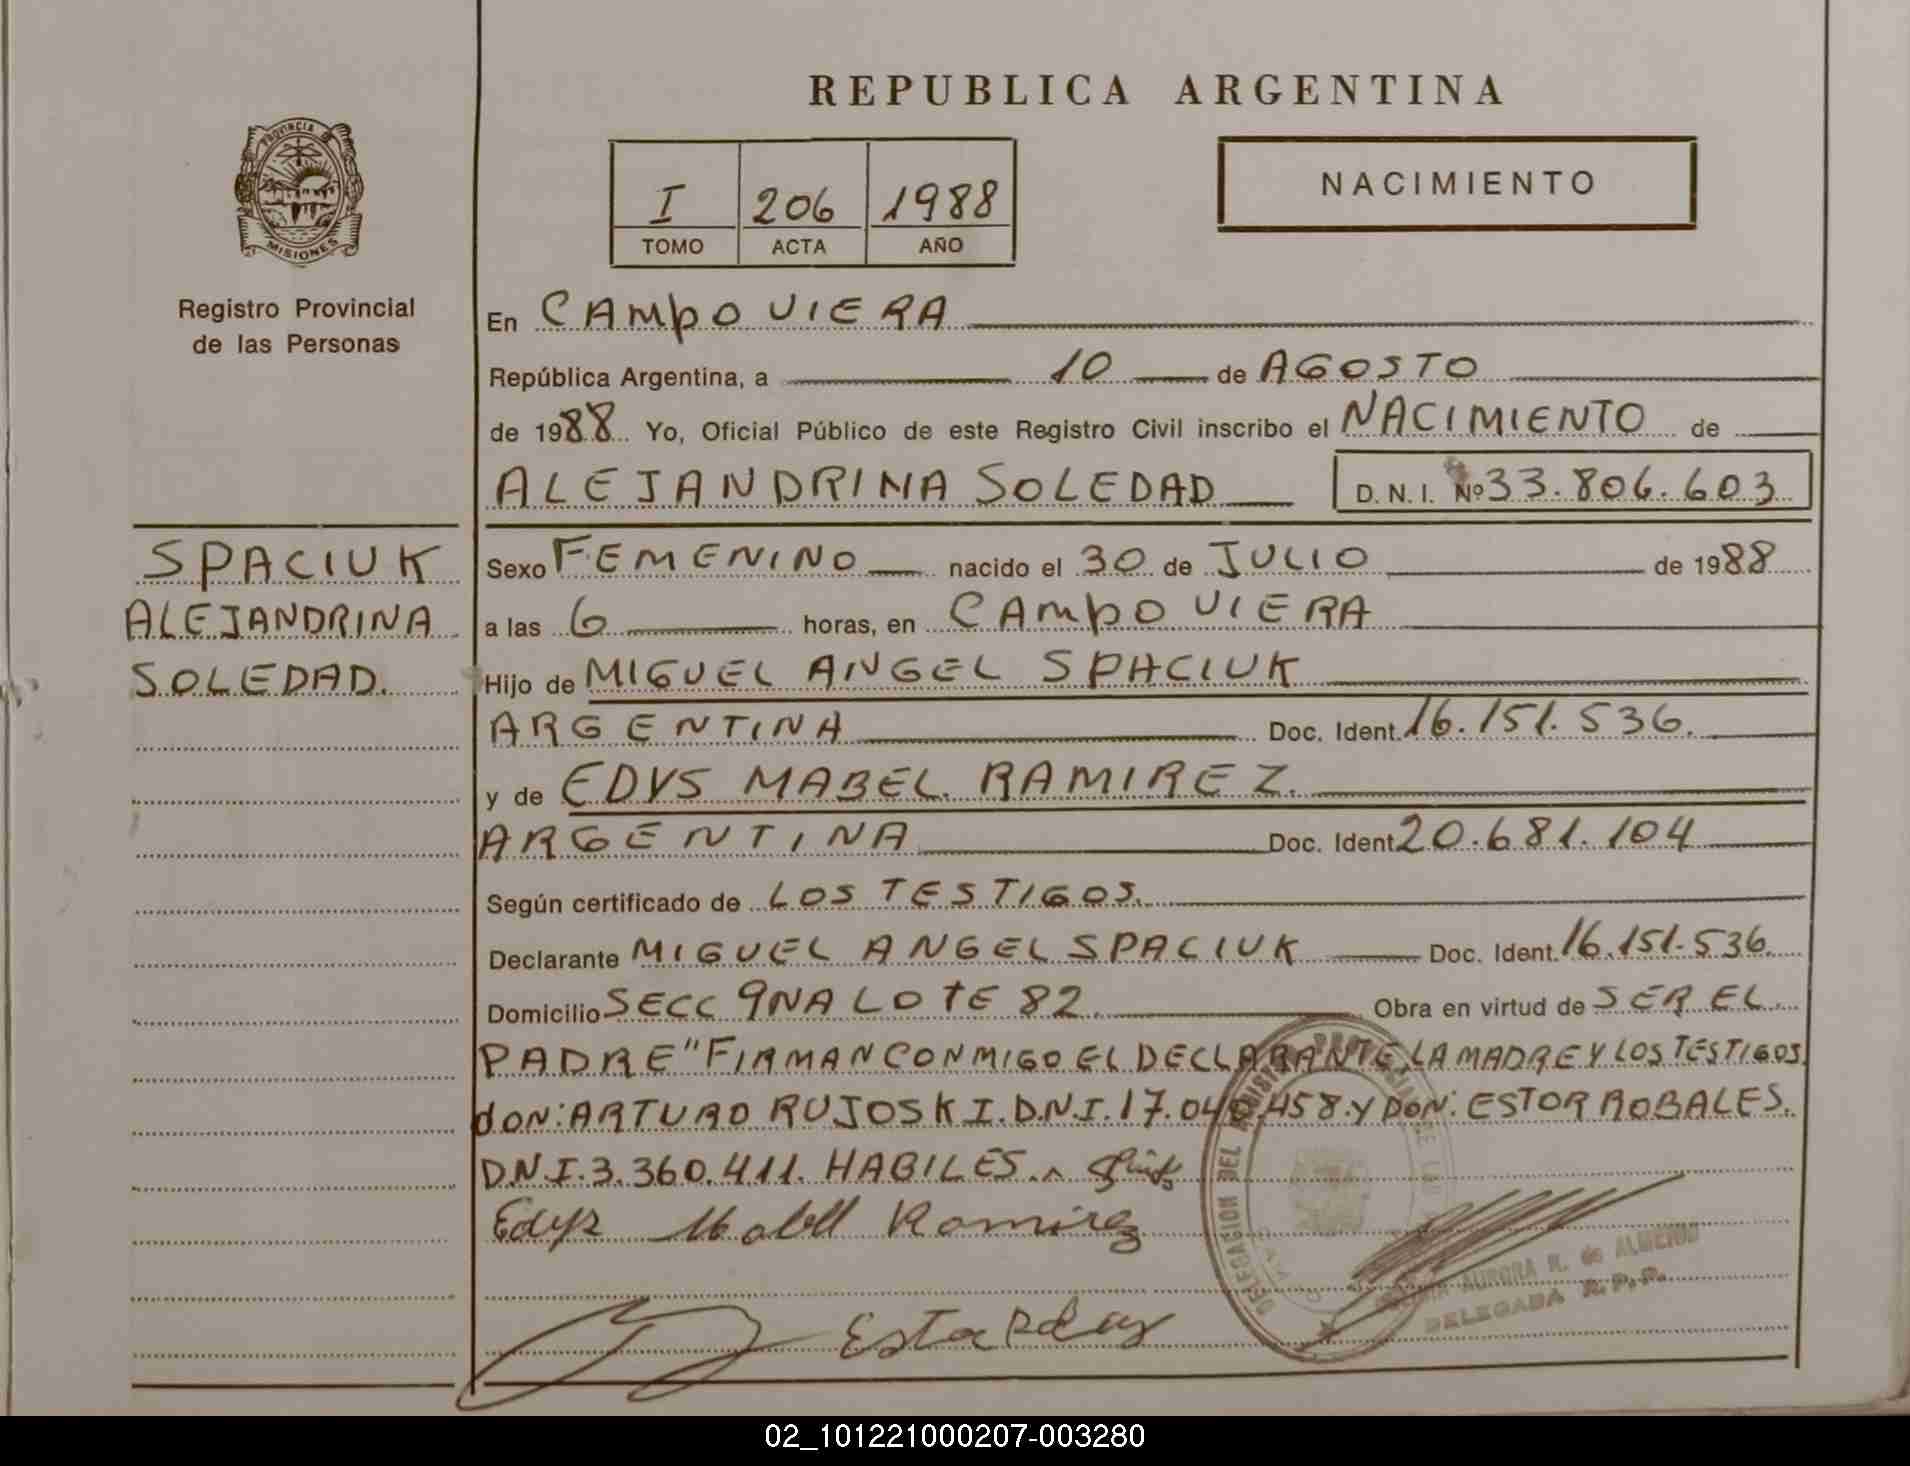 REPUBLICA ARGENTINA
PROVINCIA DE
MISIONES
Registro Provincial
de las Personas
I 206 1988
TOMO ACTA AÑO
NACIMIENTO
En CAMPO VIERA
República Argentina, a 10 de AGOSTO
de 1988 Yo, Oficial Público de este Registro Civil inscribo el NACIMIENTO de
ALEJANDRINA SOLEDAD D. N. I. Nº 33.806.603
SPACIUK
ALEJANDRINA
SOLEDAD.
Sexo FEMENINO nacido el 30 de JULIO de 1988
a las 6 horas, en CAMPO VIERA
Hijo de MIGUEL ANGEL SPACIUK
ARGENTINA Doc. Ident. 16.151.536.
y de EDYS MABEL. RAMIREZ.
ARGENTINA Doc. Ident. 20.681.104
Según certificado de LOS TESTIGOS.
Declarante MIGUEL ANGEL SPACIUK Doc. Ident. 16.151.536.
Domicilio SECC 9NA LOTE 82. Obra en virtud de SER EL
PADRE" FIRMAN CONMIGO EL DECLARANTE, LA MADRE Y LOS TESTIGOS
dON: ARTURO RUJOSKI. D.N.I. 17.040.458. Y DON: ESTOR ROBALES.
D.N.I. 3.360.411. HABILES.
Edys Mabell Ramirez
DELEGACION DEL REGISTRO PROVINCIAL DE LAS
AURORA R. de ALMEIDA
DELEGADA R.P.P.
02_101221000207-003280